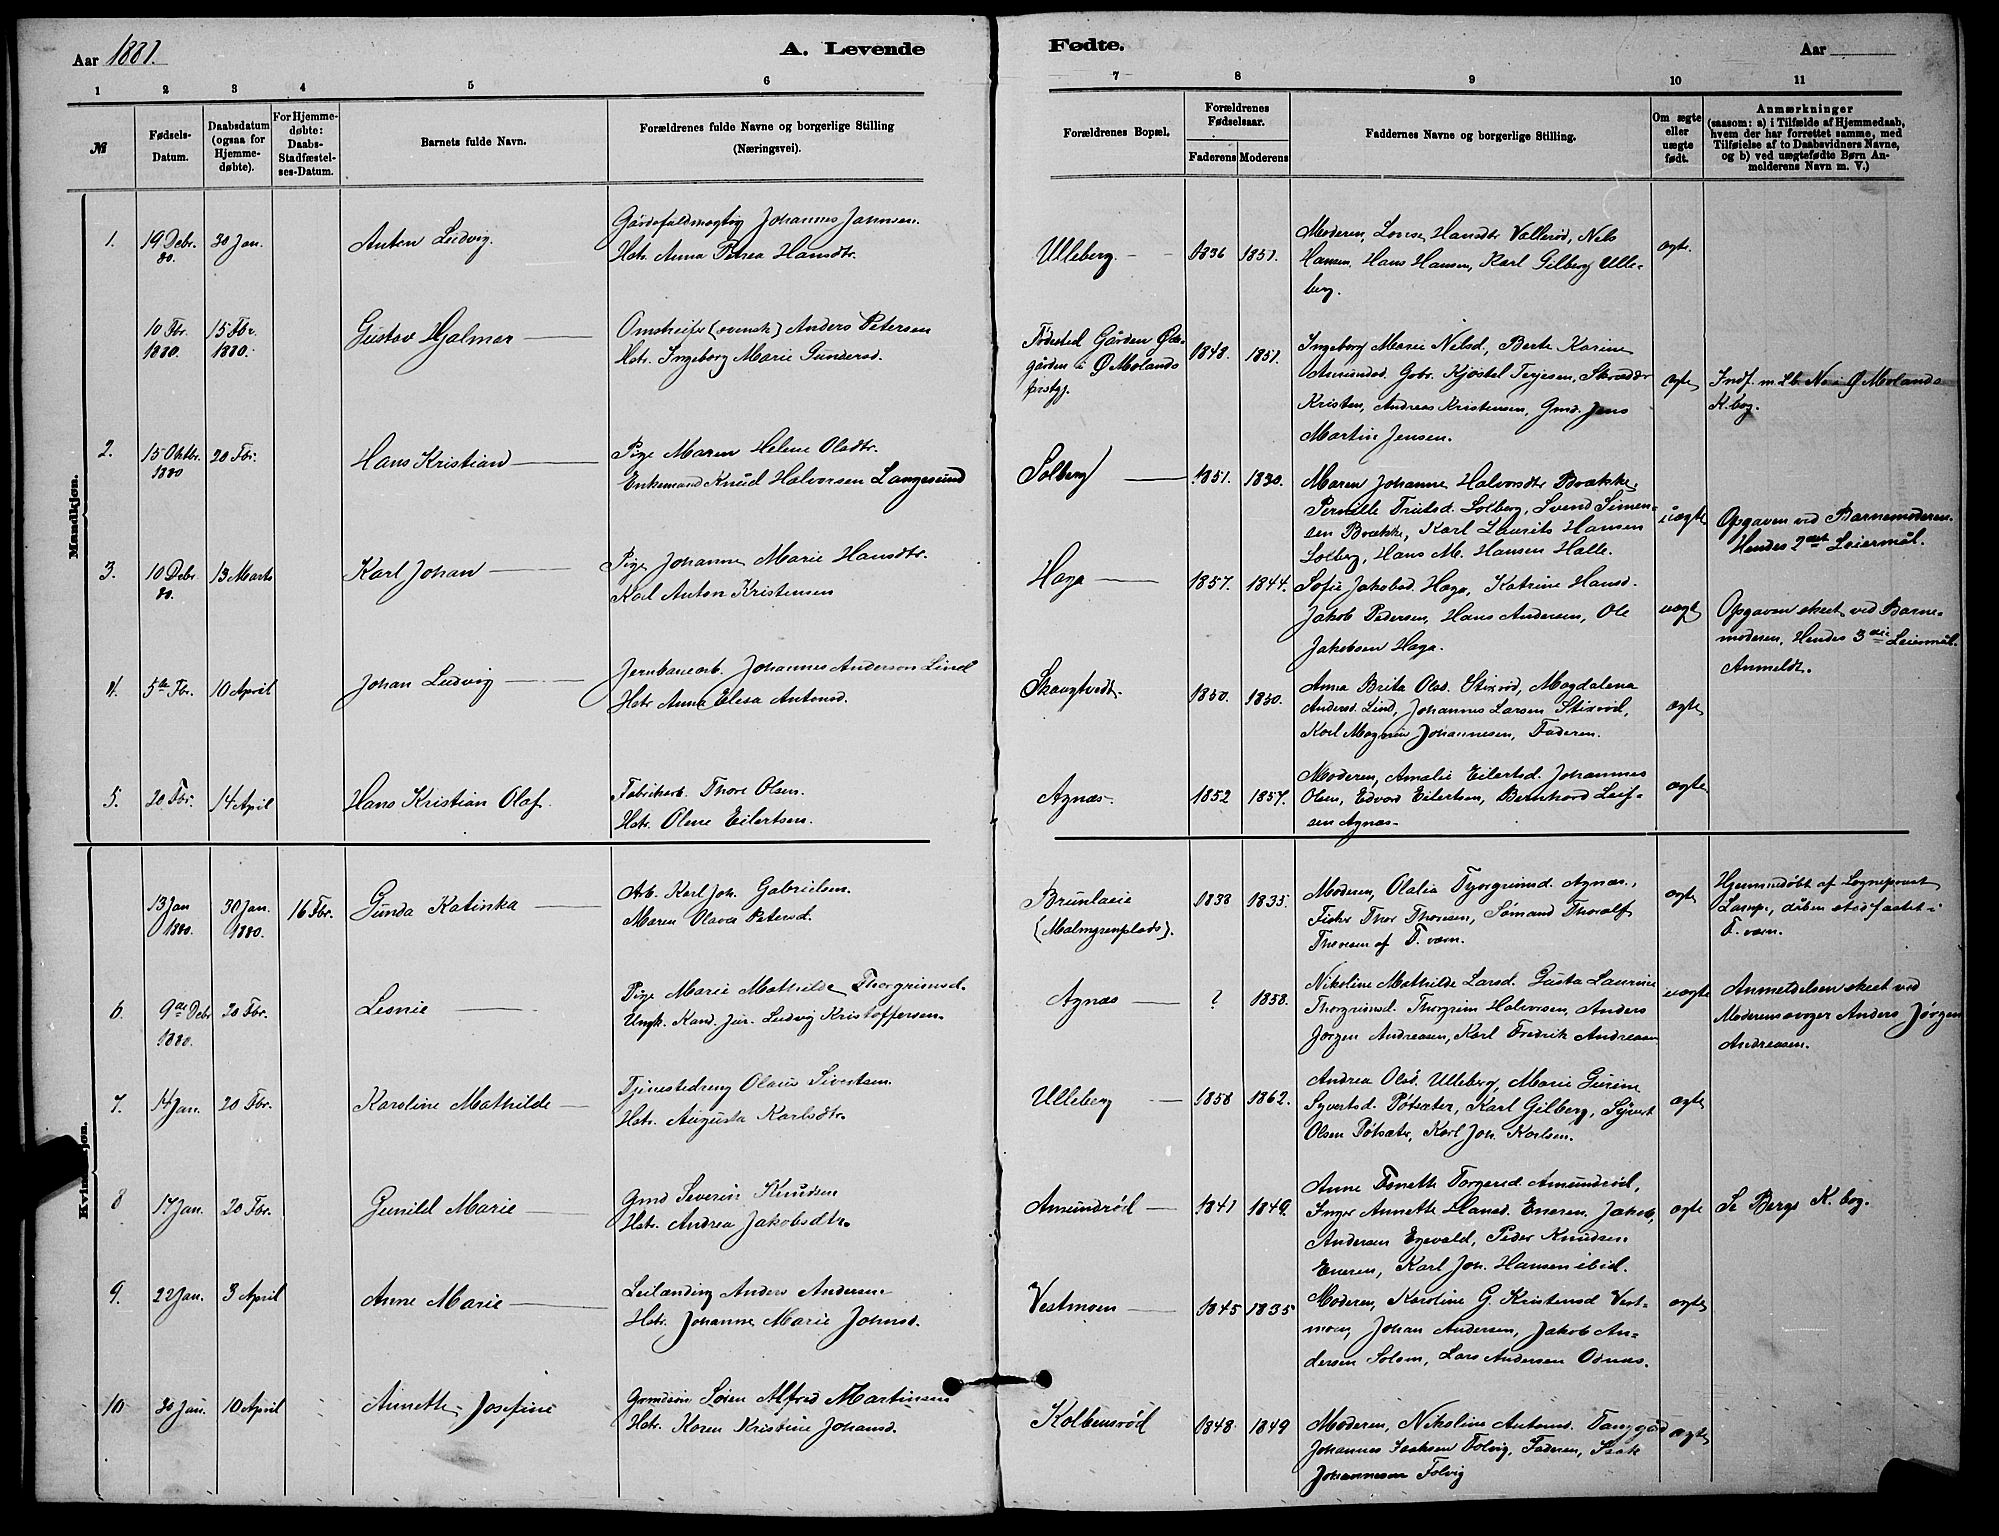 Aar 1881.
A. Levende
Fødte.
Aar
1 2 3 4 5 6
7 8 9 10 11
№
Fødsels-Datum.
Daabsdatum (ogsaa for Hjemme-døbte).
For Hjemme-døbte: Daabs-Stadfæstel-ses-Datum.
Barnets fulde Navn.
Forældrenes fulde Navne og borgerlige Stilling
(Næringsvei).
Forældrenes Bopæl.
Forældrenes Fødselsaar.
Faderens Moderens
Faddernes Navne og borgerlige Stilling.
Om ægte eller uægte født.
Anmærkninger
(saasom: a) i Tilfælde af Hjemmedaab,
hvem der har forrettet samme, med
Tilføielse af to Daabsvidners Navne,
og b) ved uægtefødte Børn An-
melderens Navn m. V.)
Mandkjøn.
1. 19 Debr. 80. 30 Jan. Anton Ludvig.
Gårdsfuldmægtig Johannes Jannsen.
Hstr. Anna Petrea Hansdtr.
Ulleberg. 1836 1851.
Moderen, Lovise Hansdtr Vallerød, Nils
Hansen, Hans Hansen, Karl Gilberg Ulle-
berg.
ægte.
10 Fbr. 1880. 15 Fbr. 1880. Gustav Hjalmar
Omstreifer (svensk) Anders Petersen
Hstr. Ingeborg Marie Gundersd.
Fødested Gården
gården i Ø Molands
prstgj.
1848. 1851.
Ingeborg Marie Nilsd., Berte Karine
Amundsd. Gbr. Kjøstel Terjesen, Skrædder
Kristen, Andreas Kristensen, Gmd. Jens
Martin Jensen.
ægte
Indf. m. Lb. No i Ø Molands
K.bog.
2. 15 Oktbr. 1880 20 Fbr. Hans Kristian
Pige Maren Helene Olsdtr.
Enkemand Knud Halvorsen Langesund
Solberg 1851. 1830.
Maren Johanne Halvorsdtr Brække,
Pernille Trulsd. Solberg, Svend Simen-
sen Brække, Karl Laurits Hansen
Solberg, Hans M. Hansen Halle.
uægte
Opgaven ved Barnemoderen.
Hendes 2det Leiermål.
3. 10 Debr. 80. 13 Marts Karl Johan
Pige Johanne Marie Hansdtr.
Karl Anton Kristensen
Haga 1857. 1844.
Sofie Jakobsd. Haga, Katrine Hansd.
Jakob Pedersen, Hans Andersen, Ole
Jakobsen Haga.
uægte
Opgaven skeet ved Barne-
moderen, Hendes 3die Leiermål.
Anmeldt.
4. 5te Fbr. 10 April Johan Ludvig
Jernbanearb. Johannes Anderson Lind
Hstr Anna Elesa Antonsd.
Skaugtvedt. 1850. 1850.
Anna Brita Olsd. Stixrød, Magdalena
Andersd. Lind, Johannes Larsen Stixrød,
Karl Magnus Johannesen, Faderen.
ægte
5. 20 Fbr. 14 April Hans Kristian Olaf.
Fabrikarb. Thore Olsen.
Hstr. Oline Eilertsen.
Agnæs. 1852 1857.
Moderen, Amalie Eilertsd. Johannes
Olsen, Edvard Eilertsen, Bernhard Leif-
sen Agnæs.
ægte
Kvindekjøn.
13 Jan 1880. 30 Jan. 1880. 16 Fbr. Gunda Katinka
Arb. Karl Joh. Gabrielsen.
Maren Olava Petersd.
Brunlanes
(Malmgrenplads). 1838 1835.
Moderen, Olalia Thorgrimsd. Agnæs,
Fisker Thor Thoresen, Sømand Thoralf
Thoresen af F. værn.
ægte
Hjemmedøbt af Sogneprest
Lampe, dåben stadfæstet i
F. værn.
6. 9de Debr 1880. 20 Fbr. Leonie
Pige Marie Mathilde Thorgrimsd.
Ungk. Kand. Jur. Ludvig Kristoffersen.
Agnæs ? 1858.
Nikoline Mathilde Larsd. Gusta Laurine
Thorgrimsd. Thorgrim Halvorsen, Anders
Jørgen Andreasen, Karl Fredrik Andreasen
uægte
Anmeldelsen skeet ved
Moderens svoger Anders Jørgen
Andreasen.
7. 14 Jan. 20 Fbr. Karoline Mathilde
Tjenestedreng Olaus Sivertsen.
Hstr. Augusta Karlsdtr.
Ulleberg 1858 1862.
Andrea Olsd. Ulleberg, Marie Gurine
Syvertsd. Pøtsæter, Karl Gilberg, Syvert
Olsen Pøtsæter, Karl Joh. Karlsen.
ægte
8 17 Jan. 20 Fbr. Gunild Marie
Gmd Severin Knudsen
Hstr. Andrea Jakobsdtr.
Amundrød 1841 1849.
Anne Tonette Torgersd. Amundrød,
Inger Annette Hansd. Eneren, Jakob
Andersen Egevald, Peder Knudsen
Eneren, Karl Joh. Hansen ibid.
ægte
Se Bergs K.bog.
9. 22 Jan. 3 April Anne Marie
Leilænding Anders Andersen
Hstr. Johanne Marie Johnsd.
Vestmoen 1845 1835
Moderen, Karoline G. Kristensd Vest-
moen, Johan Andersen, Jakob An-
dersen Solum, Lars Andersen Odnæs.
ægte
10 30 Jan. 10 April Annette Josefine
Grmdeier Søren Alfred Martinsen
Hstr. Karen Kristine Johansd.
Kolbensrød 1848 1849
Moderen, Nikoline Antonsd. Fauggård
Johannes Isaksen Tolvig, Faderen, Isak
Johannesen Tolvig
ægte